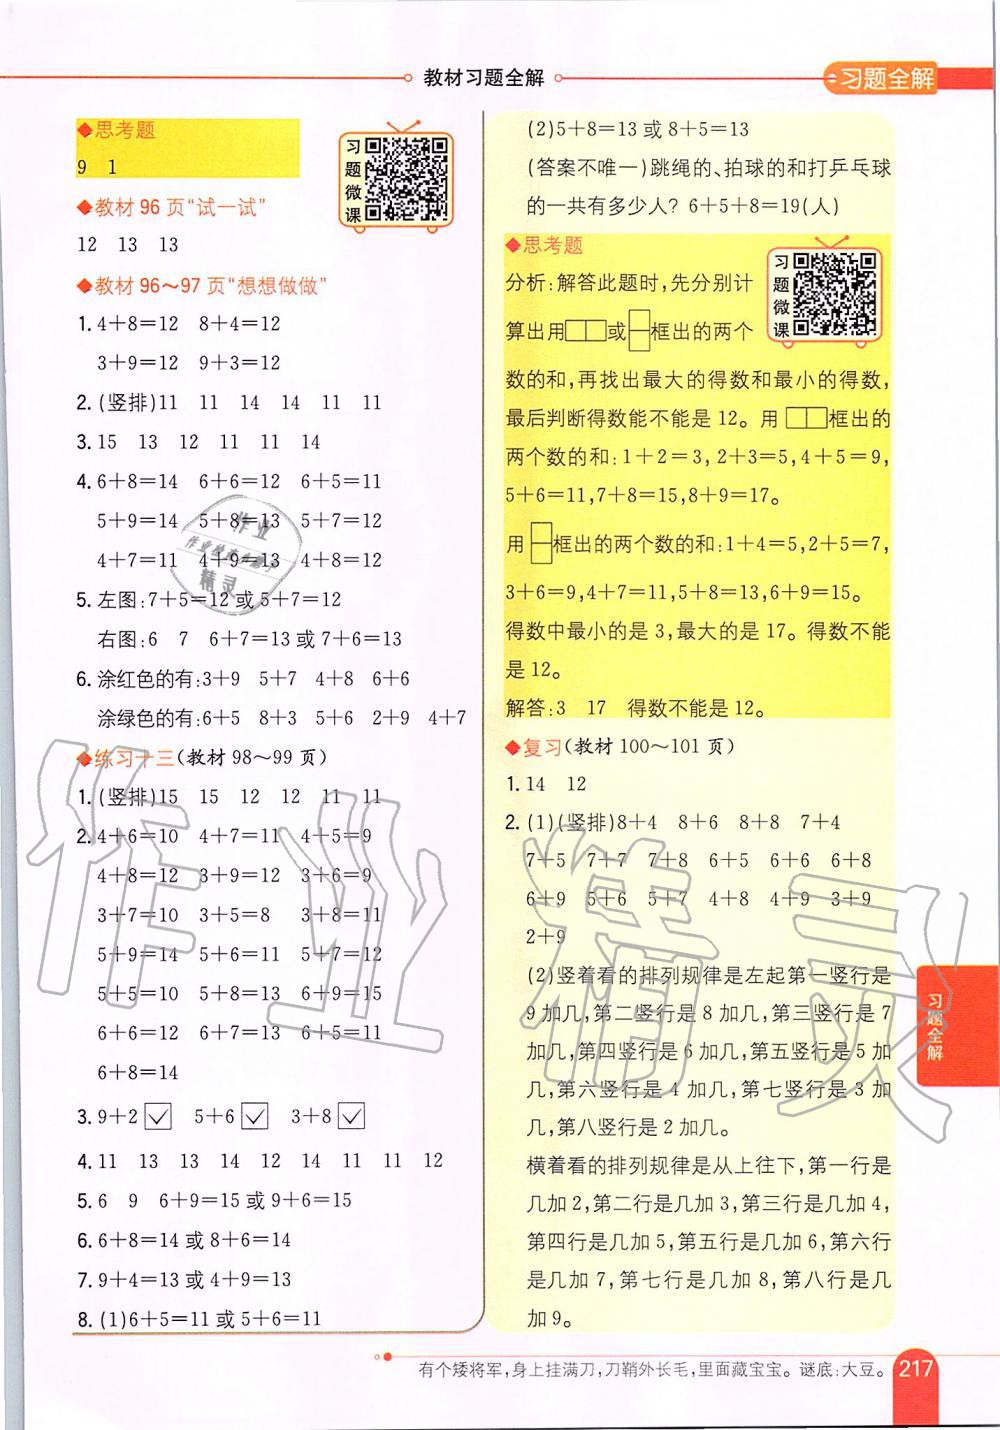 教材习题全解
习题全解
◆思考题
9 1
习题微课
◆教材96页“试一试”
12 13 13
◆教材96～97页“想想做做”
1. 4+8=12 8+4=12
3+9=12 9+3=12
2. (竖排)11 11 14 14 11 11
3. 15 13 12 11 11 14
4. 6+8=14 6+6=12 6+5=11
5+9=14 5+8=13 5+7=12
4+7=11 4+9=13 4+8=12
5. 左图:7+5=12或5+7=12
右图:6 7 6+7=13或7+6=13
6. 涂红色的有:3+9 5+7 4+8 6+6
涂绿色的有:6+5 8+3 5+6 2+9 4+7
◆练习十三(教材98～99页)
1. (竖排)15 15 12 12 11 11
2. 4+6=10 4+7=11 4+5=9
4+8=12 3+9=12 3+6=9
3+7=10 3+5=8 3+8=11
5+9=14 5+6=11 5+7=12
5+5=10 5+8=13 6+9=15
6+6=12 6+7=13 6+5=11
6+8=14
3. 9+2☑ 5+6☑ 3+8☑
4. 11 13 13 14 12 14 11 11 12
5. 6 9 6+9=15或9+6=15
6. 6+8=14或8+6=14
7. 9+4=13或4+9=13
8. (1)6+5=11或5+6=11
(2)5+8=13或8+5=13
(答案不唯一)跳绳的、拍球的和打乒乓球
的一共有多少人? 6+5+8=19(人)
◆思考题
习题微课
分析:解答此题时,先分别计
算出用□□或 框出的两个
数的和,再找出最大的得数和最小的得数,
最后判断得数能不能是12。用□□框出的
两个数的和:1+2=3,2+3=5,4+5=9,
5+6=11,7+8=15,8+9=17。
用 框出的两个数的和:1+4=5,2+5=7,
3+6=9,4+7=11,5+8=13,6+9=15。
得数中最小的是3,最大的是17。得数不能
是12。
解答:3 17 得数不能是12。
◆复习(教材100～101页)
1. 14 12
2. (1)(竖排)8+4 8+6 8+8 7+4
7+5 7+7 7+8 6+5 6+6 6+8
6+9 5+6 5+7 4+8 4+9 3+9
2+9
(2)竖着看的排列规律是左起第一竖行是
9加几,第二竖行是8加几,第三竖行是7
加几,第四竖行是6加几,第五竖行是5加
几,第六竖行是4加几,第七竖行是3加
几,第八竖行是2加几。
横着看的排列规律是从上往下,第一行是
几加2,第二行是几加3,第三行是几加4,
第四行是几加5,第五行是几加6,第六行
是几加7,第七行是几加8,第八行是几
加9。
习题全解
有个矮将军,身上挂满刀,刀鞘外长毛,里面藏宝宝。谜底:大豆。
217
作业精灵
作业
精灵